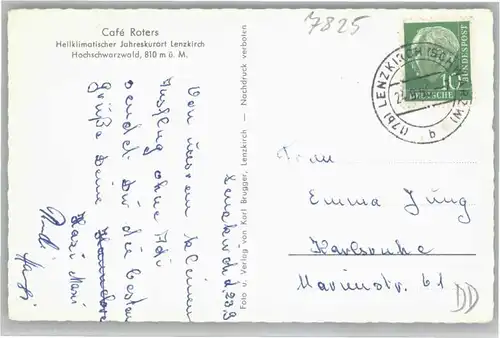 Café Roters
Heilklimatischer Jahreskurort Lenzkirch
Hochschwarzwald, 810 m ü. M.
7825
Foto u. Verlag von Karl Brugger, Lenzkirch — Nachdruck verboten
DEUTSCHE BUNDESPOST
10
(17b) LENZKIRCH (SCHWARZW)
b
Lenzkirch d. 23.9
Von unserem kleinen
Ausflug ohne Adi
sendet Dir die besten
Grüße Deine
Maxi
Emma Jung
Karlsruhe
Marienstr. 61
DD